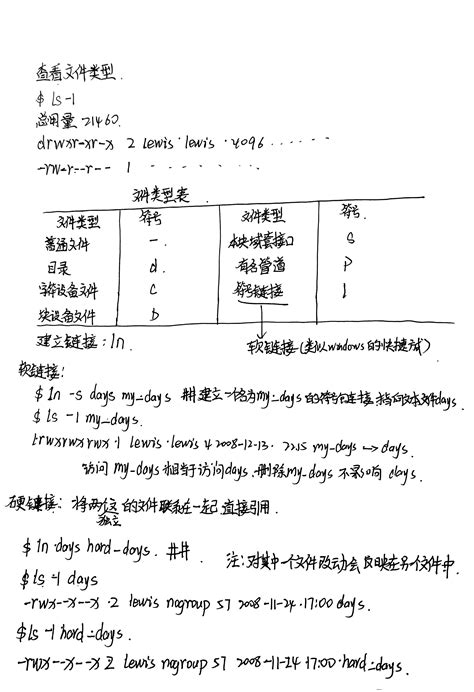 查看文件类型.
$ ls -l
总用量 21460.
drwxr-xr-x 2 lewis·lewis ·4096 ......
-rw-r--r-- 1 ........
文件类型表
文件类型 符号 文件类型 符号.
普通文件 - 本块域套接口 s
目录 d. 有名管道 P
字符设备文件 c 符号链接 l
块设备文件 b
建立链接: ln. 软链接(类似windows的快捷方式)
软链接:
$ ln -s days my_days ## 建立一个名为my_days的符号链接,指向文本文件days.
$ ls -l my_days.
lrwxrwxrwx·1 lewis·lewis 4 2008-12-13. 22:15 my-days → days.
访问 my-days 相当于访问days. 删除my_days 不影响 days.
硬链接: 将两个独立的文件联系在一起 直接引用.
$ ln days hard_days. ##. 注:对其中一个文件改动会反映在另个文件中.
$ ls -l days
-rwx--x--x ·2 lewis nogroup 57 2008-11-24·17:00 days.
$ ls -l hard_days.
-rwx--x--x 2 lewis nogroup 57 2008-11-24 17:00·hard_days.